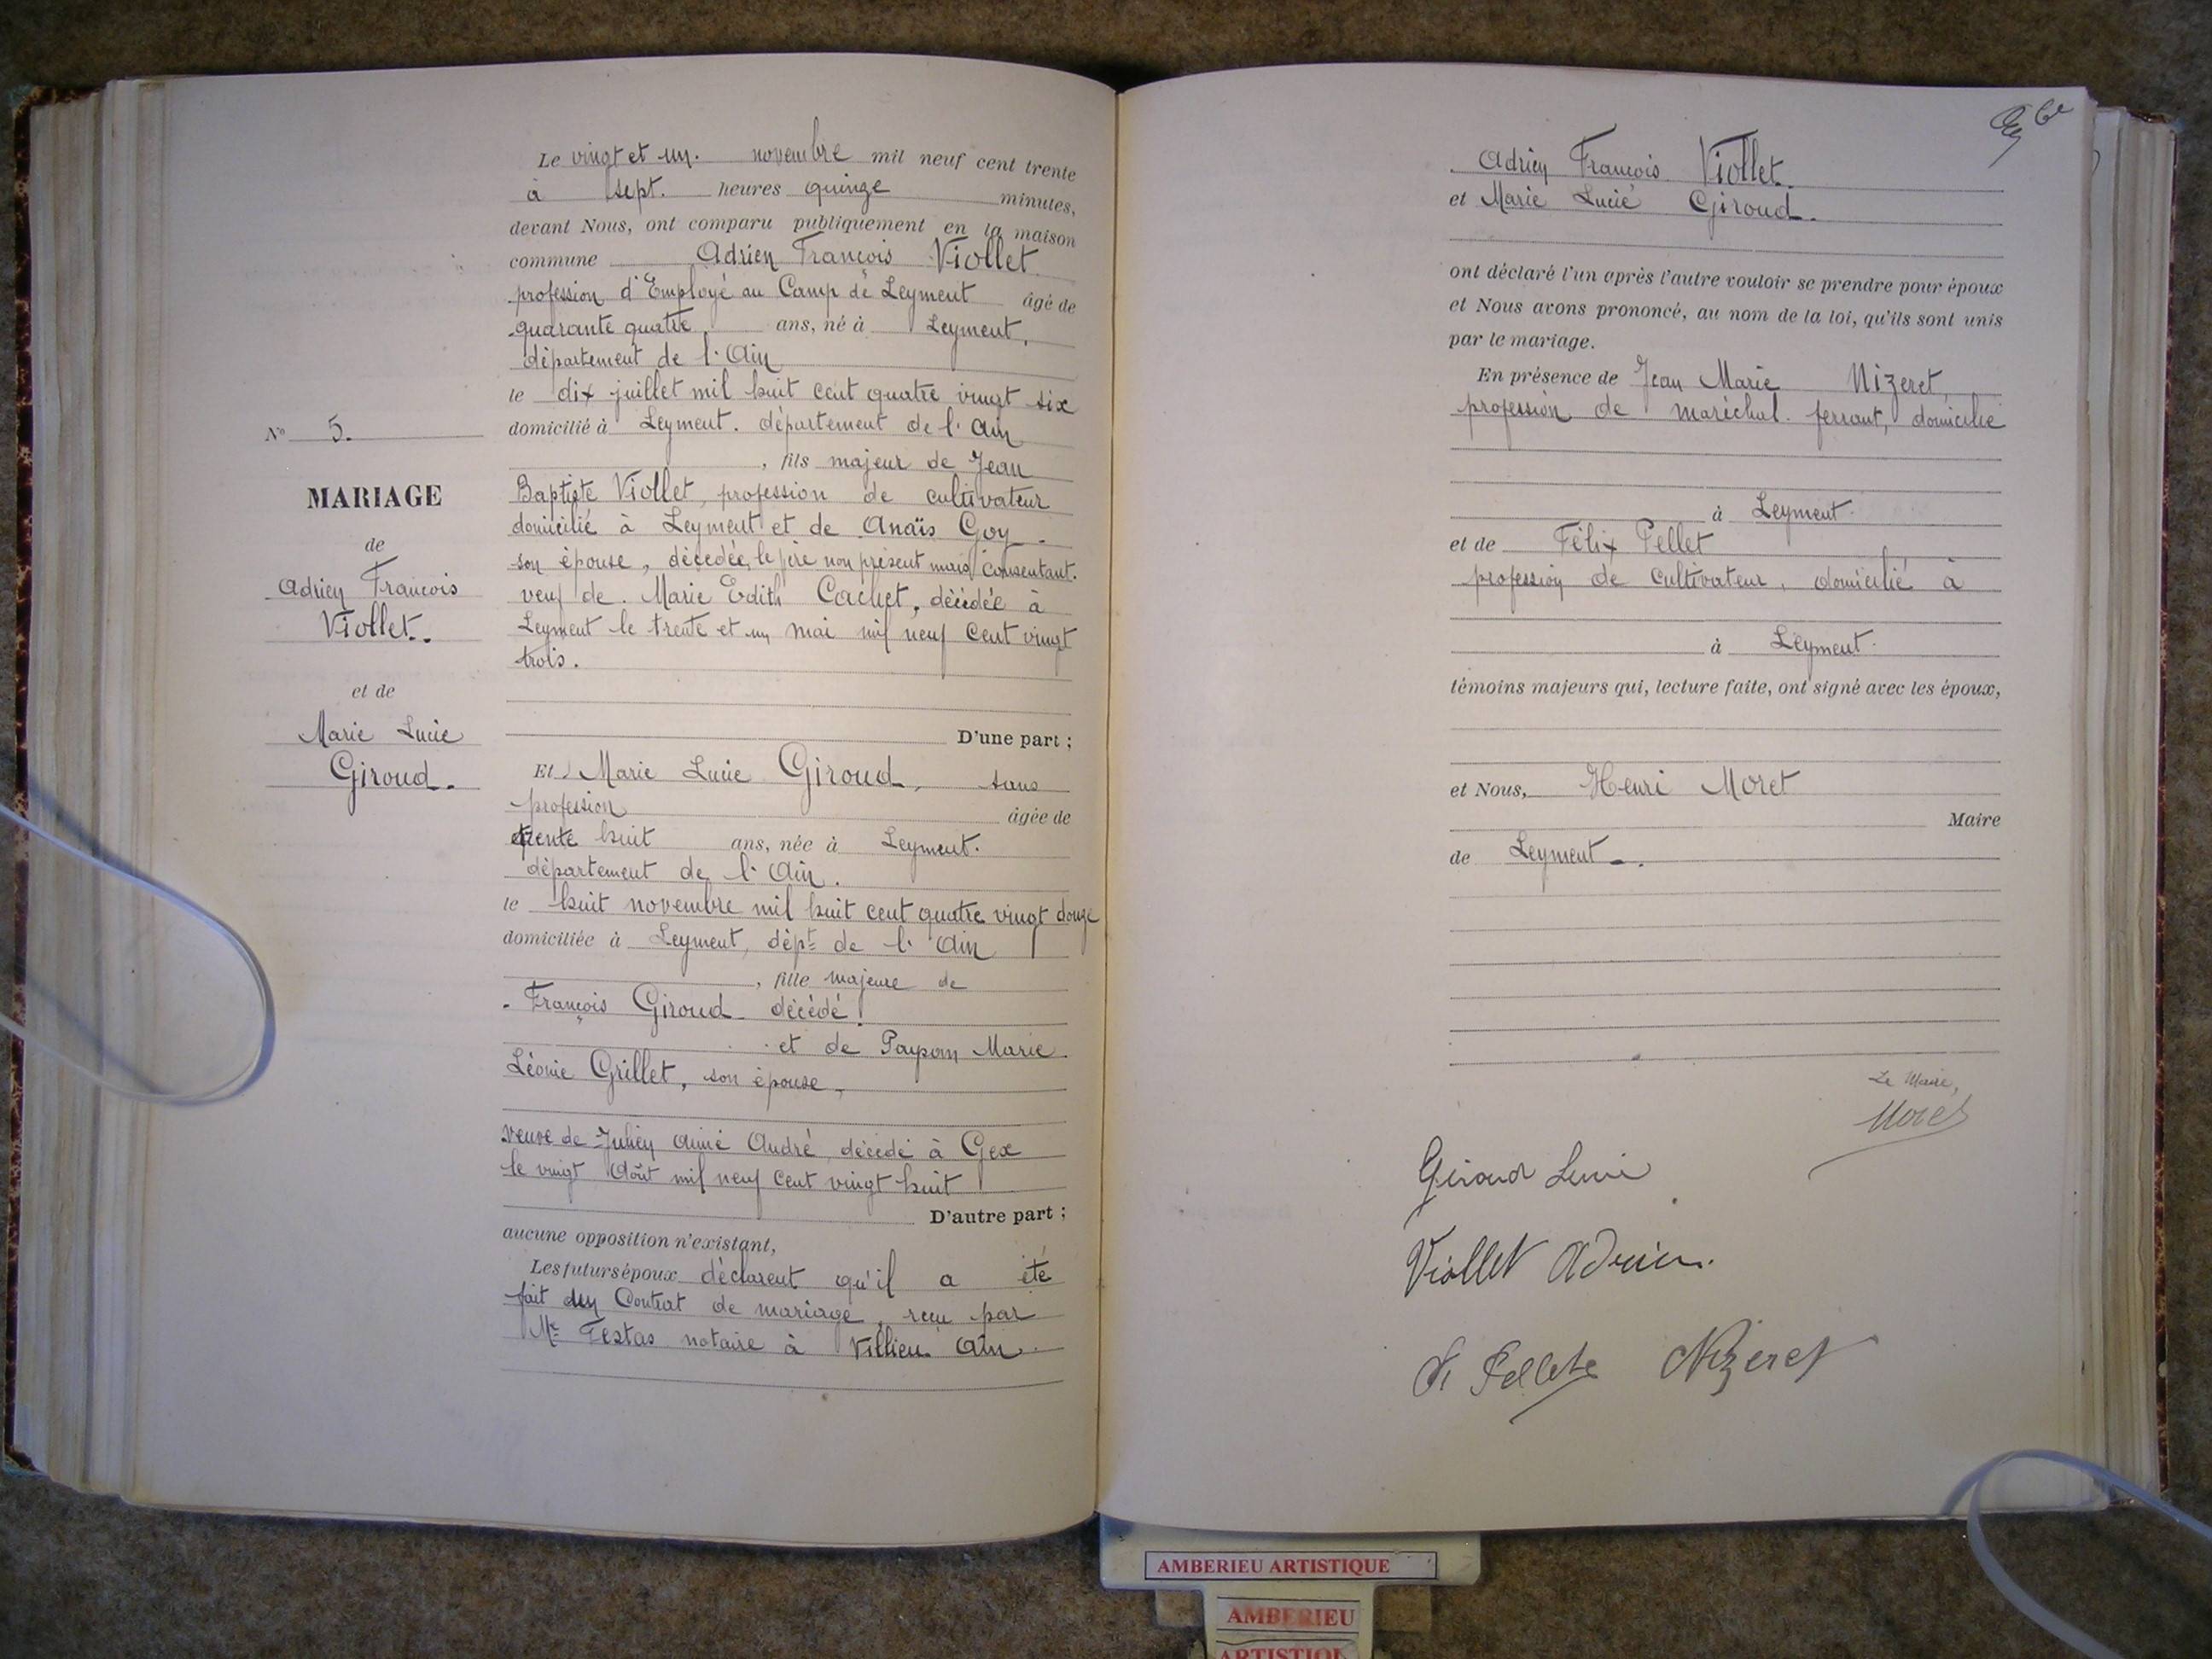 Le vingt et un novembre mil neuf cent trente
à sept. heures quinze minutes,
devant Nous, ont comparu publiquement en la maison
commune Adrien François Viollet
profession d'Employé au Camp de Leyment âgé de
quarante quatre, ans, né à Leyment,
département de l'Ain
le dix juillet mil huit cent quatre vingt six
domicilié à Leyment. département de l'Ain
, fils majeur de Jean
Baptiste Viollet, profession de cultivateur
domicilié à Leyment et de Anaïs Goy
son épouse, décédée, le père non présent mais consentant.
veuf de Marie Edith Cachet, décédée à
Leyment le trente et un mai mil neuf cent vingt
trois.
D'une part ;
Et Marie Lucie Giroud, sans
profession âgée de
trente huit ans, née à Leyment.
département de l'Ain.
le huit novembre mil huit cent quatre vingt douze
domiciliée à Leyment, dépt de l'Ain
, fille majeure de
François Giroud décédé
et de Marie
Léonie Grillet, son épouse,
veuve de Julien Aimé André, décédé à Gex
le vingt Août mil neuf cent vingt huit
D'autre part ;
aucune opposition n'existant,
Les futurs époux déclarent qu'il a été
fait un Contrat de mariage, reçu par
Me Festas notaire à Villieu Ain.
N° 5.
MARIAGE
de
Adrien François
Viollet.
et de
Marie Lucie
Giroud.
Adrien François Viollet.
et Marie Lucie Giroud.
ont déclaré l'un après l'autre vouloir se prendre pour époux
et Nous avons prononcé, au nom de la loi, qu'ils sont unis
par le mariage.
En présence de Jean Marie Nizeret,
profession de maréchal. ferrant, domicilié
à Leyment.
et de Félix Pellet
profession de cultivateur, domicilié à
à Leyment.
témoins majeurs qui, lecture faite, ont signé avec les époux,
et Nous, Henri Moret
Maire
de Leyment.
Le Maire,
Moret
Giroud Lucie
Viollet Adrien.
Nizeret
AMBERIEU ARTISTIQUE
AMBERIEU